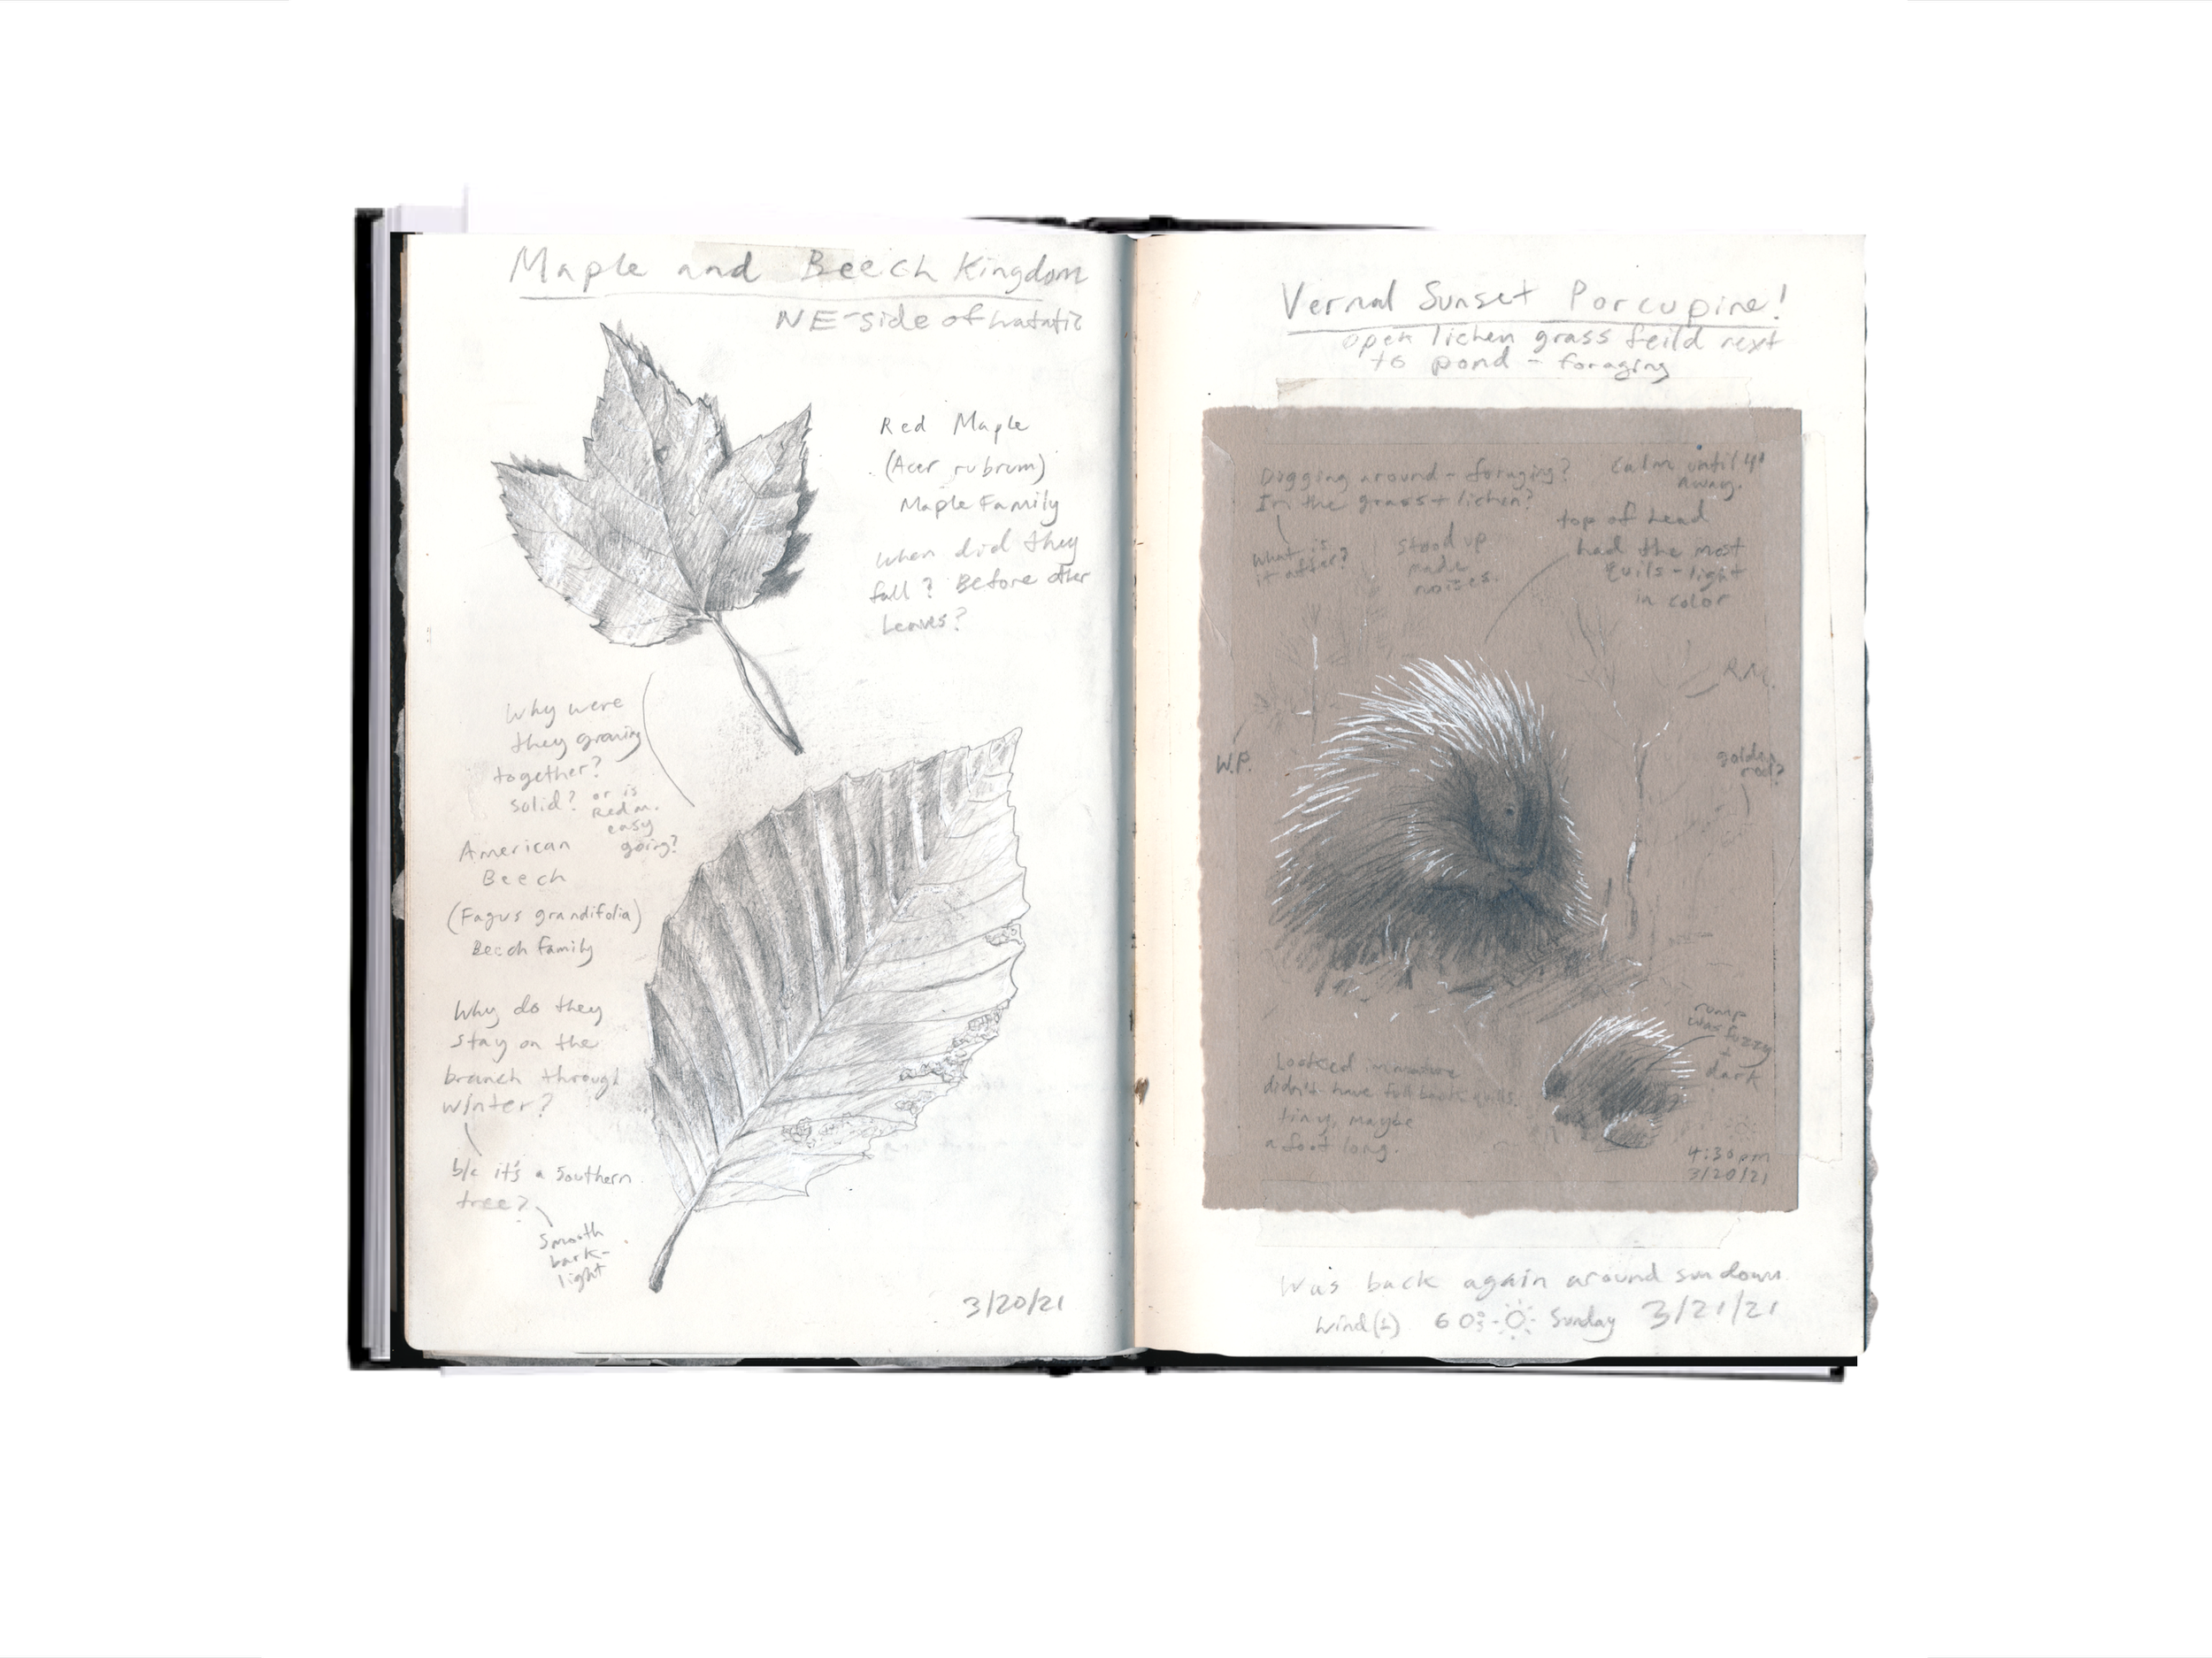 Maple and Beech Kingdom
NE-side of Watatic
Red Maple
(Acer rubrum)
Maple Family
When did they
fall? Before other
Leaves?
Why were
they growing
together?
solid? or is
Red m.
easy
going?
American
Beech
(Fagus grandifolia)
Beech family
Why do they
stay on the
branch through
winter?
b/c it's a Southern
tree?
Smooth
bark-
light
3/20/21
Vernal Sunset Porcupine!
open lichen grass feild next
to pond - foraging
Digging around - foraging?
In the grass + lichen?
What is
it after?
Calm until 4'
away.
Stood up
made
noises.
top of head
had the most
quils - light
in color
R.M.
W.P.
golden
rod?
rump
was fuzzy
+
dark
Looked immature
didn't have full back quills.
tiny, maybe
a foot long.
4:30pm
3/20/21
Was back again around sundown
Wind(L) 60° Sunday 3/21/21